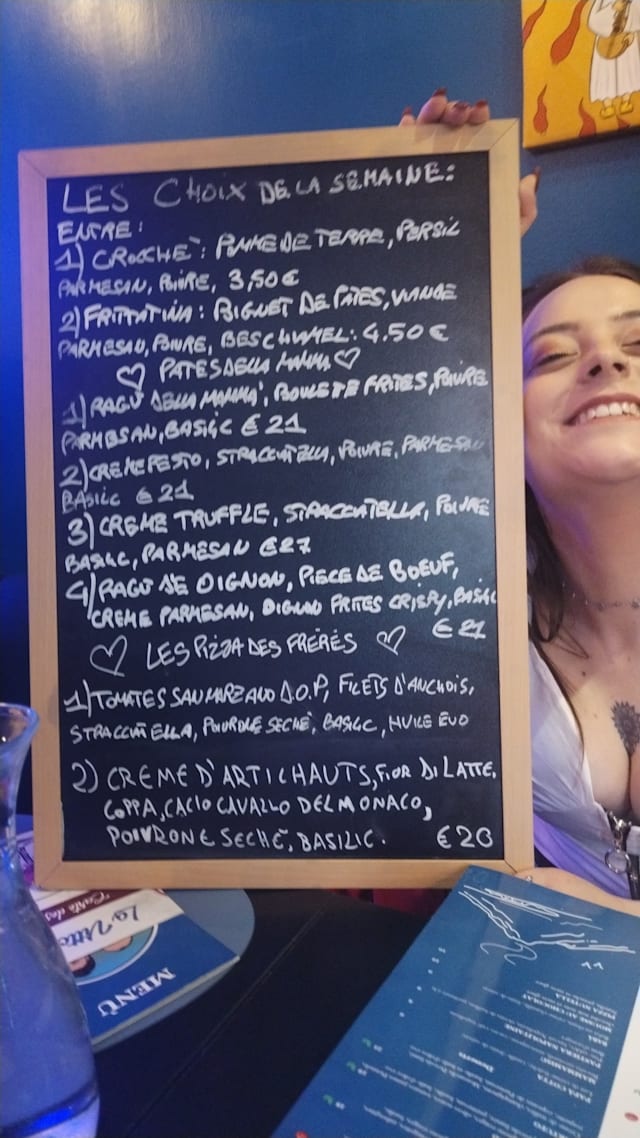 LES CHOIX DE LA SEMAINE:
ENTRE:
1) CROCCHÈ: POMME DE TERRE, PERSIL
PARMESAN, POIVRE, 3,50€
2) FRITTATINA: BIGNET DE PATES, VIANDE
PARMESAN, POIVRE, BESCHIAMEL: 4.50€
♡ PATES DELLA MAMMA ♡
1) RAGÙ DELLA MAMMA', BOULETE FRITES, POIVRE
PARMESAN, BASILIC €21
2) CREME PESTO, STRACCIATELLA, POIVRE, PARMESAN
BASILIC €21
3) CREME TRUFFLE, STRACCIATELLA, POIVRE
BASILIC, PARMESAN €27
4) RAGÙ DE OIGNON, PIECE DE BOEUF,
CREME PARMESAN, OIGNON FRITES CRISPY, BASILIC
€21
♡ LES PIZZA DES FRÉRÉS ♡
1) TOMATES SAN MARZANO D.O.P, FILETS D'ANCHOIS,
STRACCIATELLA, POIVRONE SECHÉ, BASILIC, HUILE EVO
2) CREME D'ARTICHAUTS, FIOR DI LATTE,
COPPA, CACIO CAVALLO DEL MONACO,
POIVRONE SECHÉ, BASILIC. €20
La Vitto
MENÙ
Desserts
PIZZA NUTELLA
MOUSSE AU CHOCOLAT
BABA
PASTIERA NAPOLITAINE
PANNA COTTA